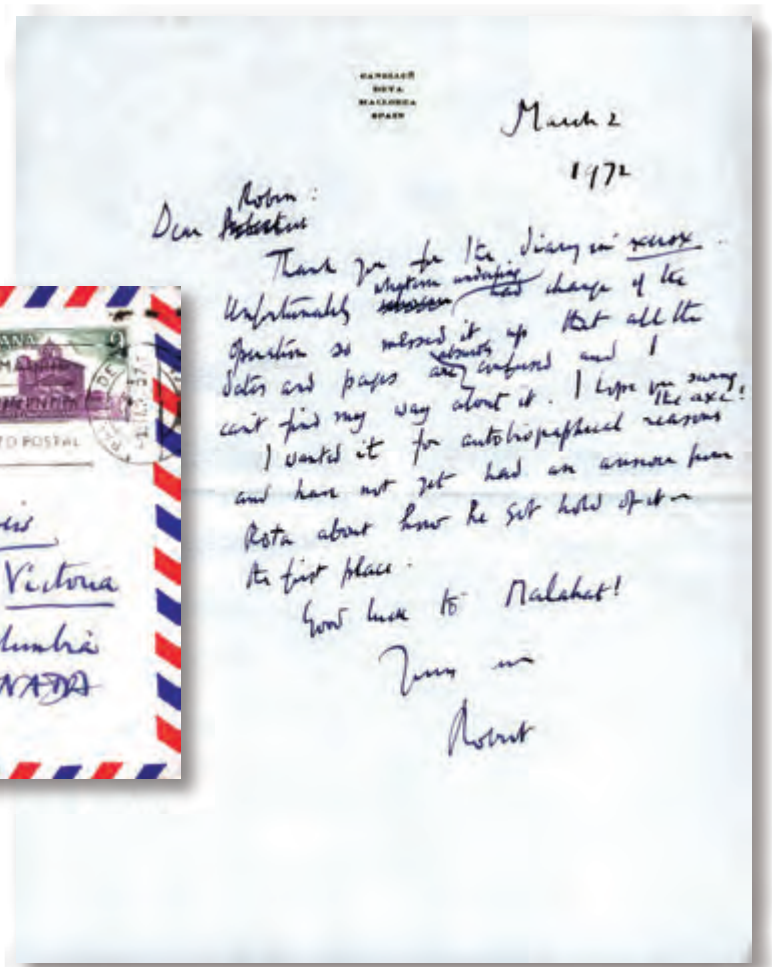 CANELLUÑ
DEYA
MALLORCA
SPAIN
March 2
1972
Robin :
Dear
Thank you for the diary in xerox.
Unfortunately whoever had charge of the
operation so messed it up that all the
dates and pages are absurdly confused and I
can't find my way about it. I hope you swung
the axe!
I wanted it for autobiographical reasons
and have not yet had an answer from
Rota about how he got hold of it in
the first place.
Good luck to Malahat!
Yours
Robert
TO POSTAL
Victoria
lumbia
NADA